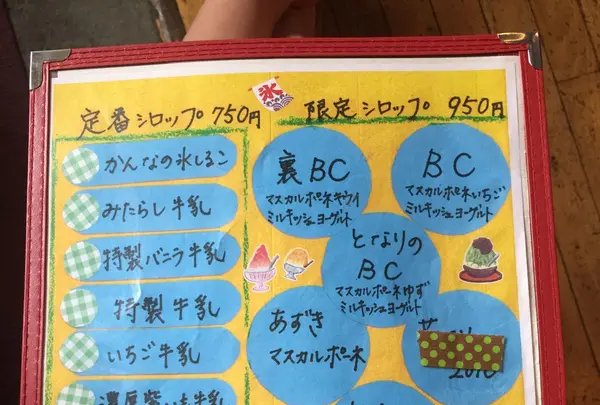 定番シロップ 750円
かんなの氷しるこ
みたらし牛乳
特製バニラ牛乳
特製牛乳
いちご牛乳
濃厚紫いも牛乳
氷
限定シロップ 950円
裏BC
マスカルポーネキウイ
ミルキッシュヨーグルト
BC
マスカルポーネいちご
ミルキッシュヨーグルト
となりの
BC
マスカルポーネゆず
ミルキッシュヨーグルト
あずき
マスカルポーネ